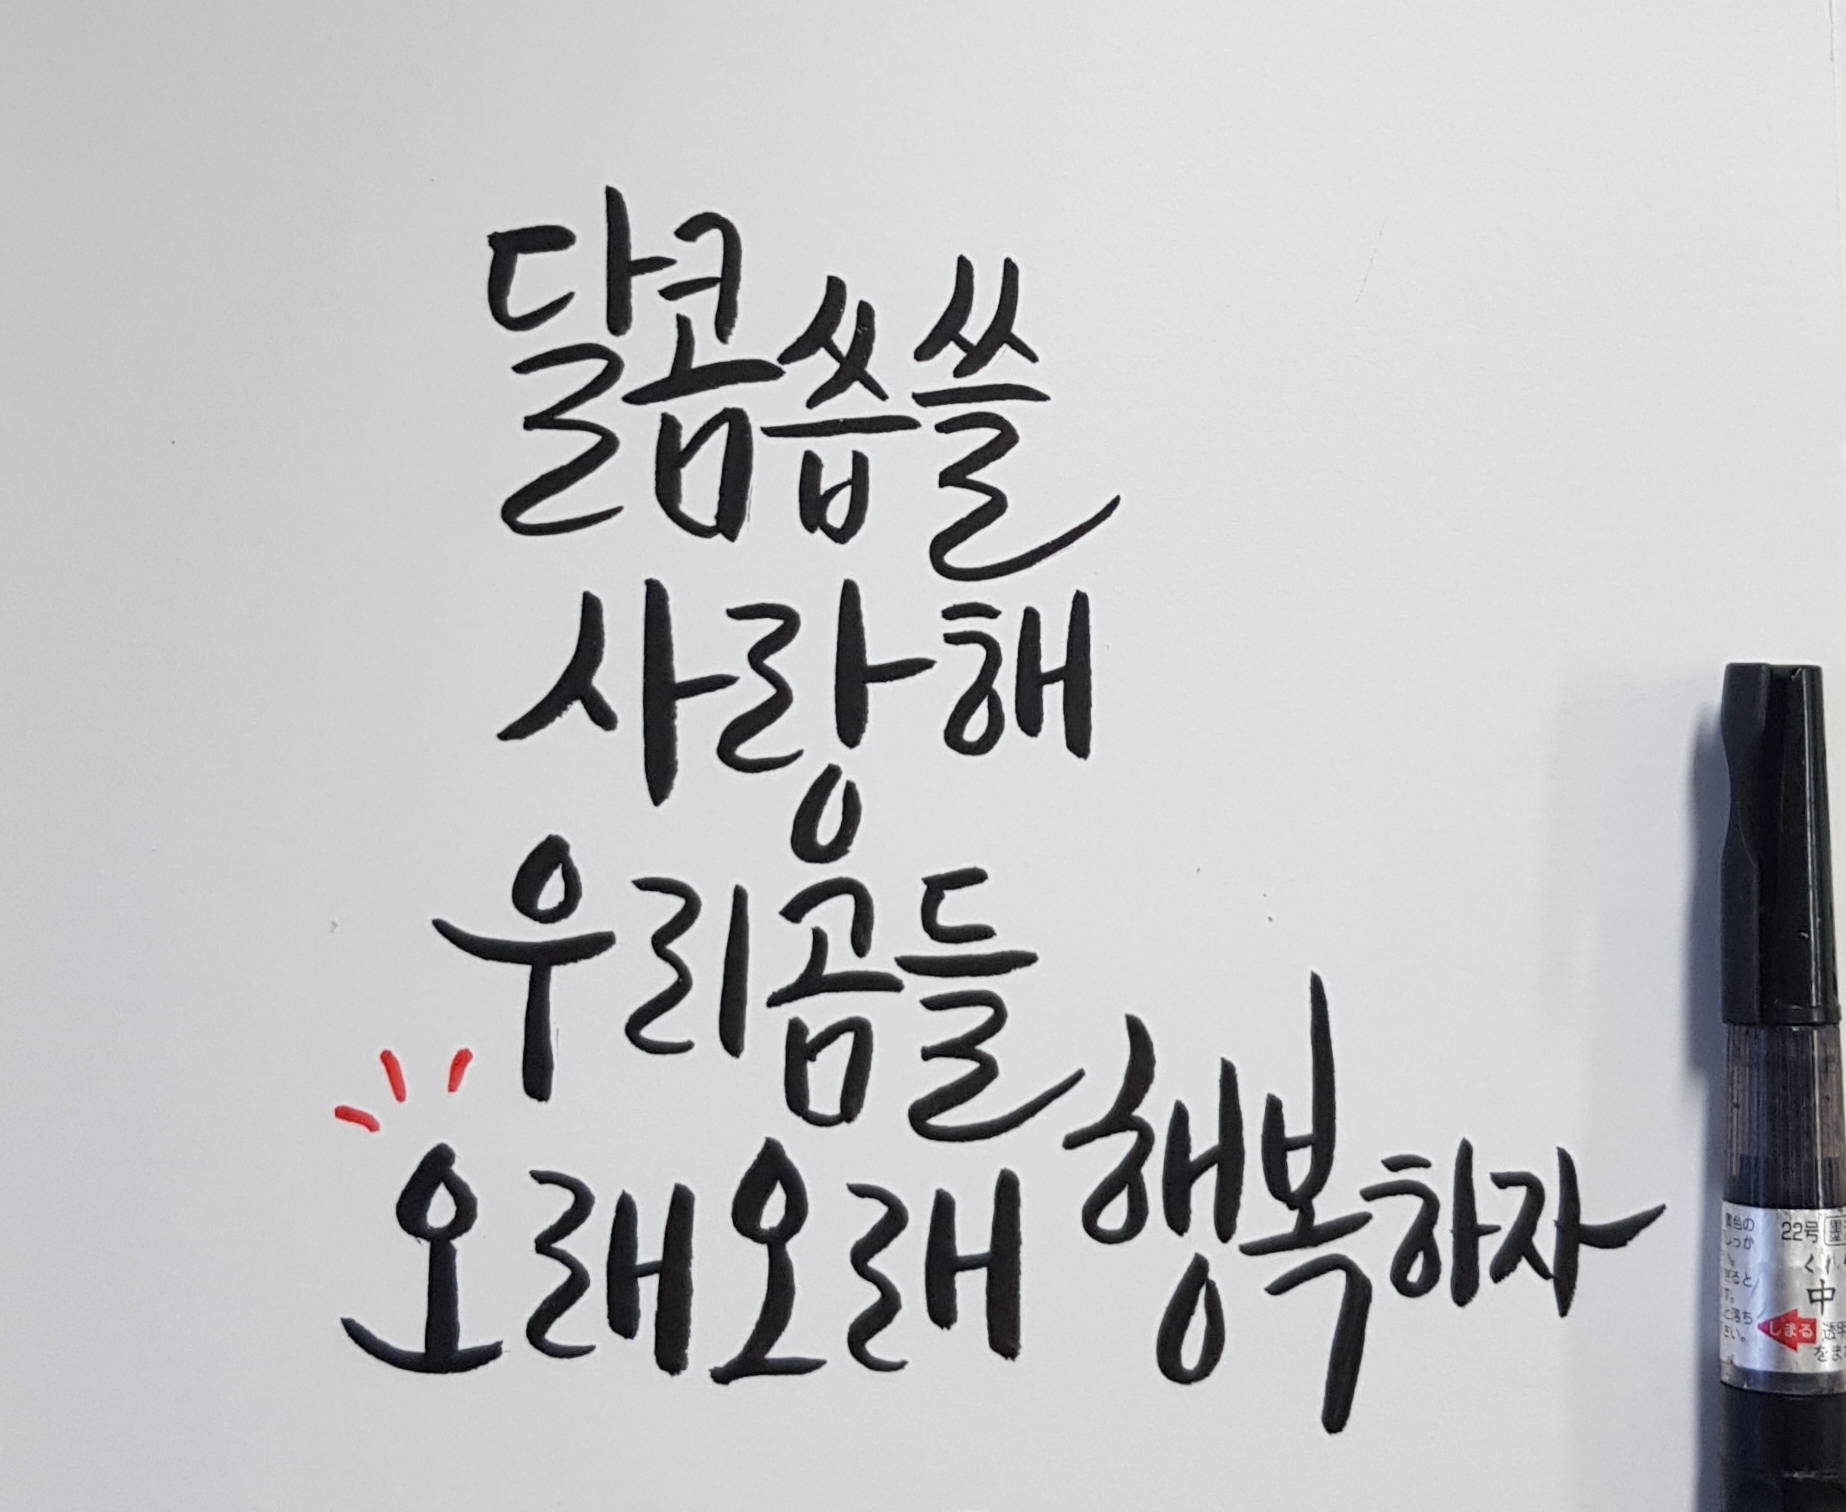 달콤씁쓸
사랑해
우리곰들
오래오래 행복하자
22号
中
しまる